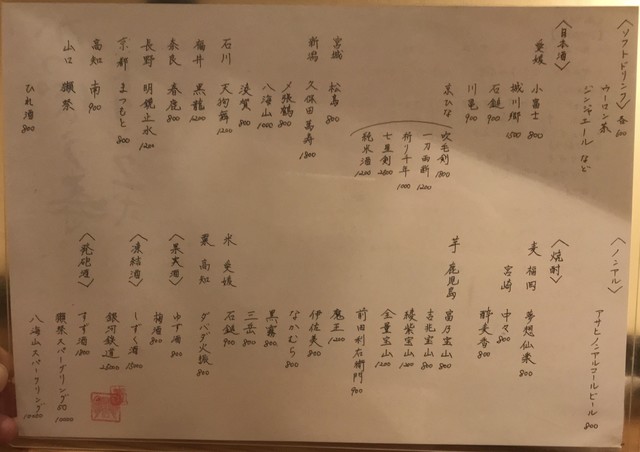 〈ソフトドリンク〉各600
ウーロン茶
ジンジャエール など
〈日本酒〉
愛媛 小富士 800
城川郷 1500
石鎚 900
川亀 900
京ひな 吹毛剣 1800
一刀両断 1200
祈り千年 1000
七星剣 2600
純米酒 1200
宮城 松島 800
新潟 久保田萬寿 1800
〆張鶴 800
八海山 1000
浪賀 800
石川 天狗舞 1200
福井 黒龍 1200
奈良 春鹿 800
長野 明鏡止水 1200
京都 まつもと 800
高知 南 900
山口 獺祭
ひれ酒 800
〈ノンアル〉
アサヒノンアルコールビール 800
〈焼酎〉
麦 福岡 夢想仙楽 800
宮崎 中々 800
酔麦香 800
芋 鹿児島 富乃宝山 800
吉兆宝山 800
綾紫宝山 1200
全量宝山 1200
前田利右衛門 900
魔王 1200
伊佐美 800
なかむら 800
黒霧 800
三岳 800
米 愛媛 石鎚 900
栗 高知 ダバダ火振 800
〈果実酒〉
ゆず酒 800
梅酒 800
〈凍結酒〉
しずく酒 1500
銀河鉄道 25000
〈発砲酒〉
すず酒 1800
獺祭スパークリング50 10000
八海山スパークリング 10000